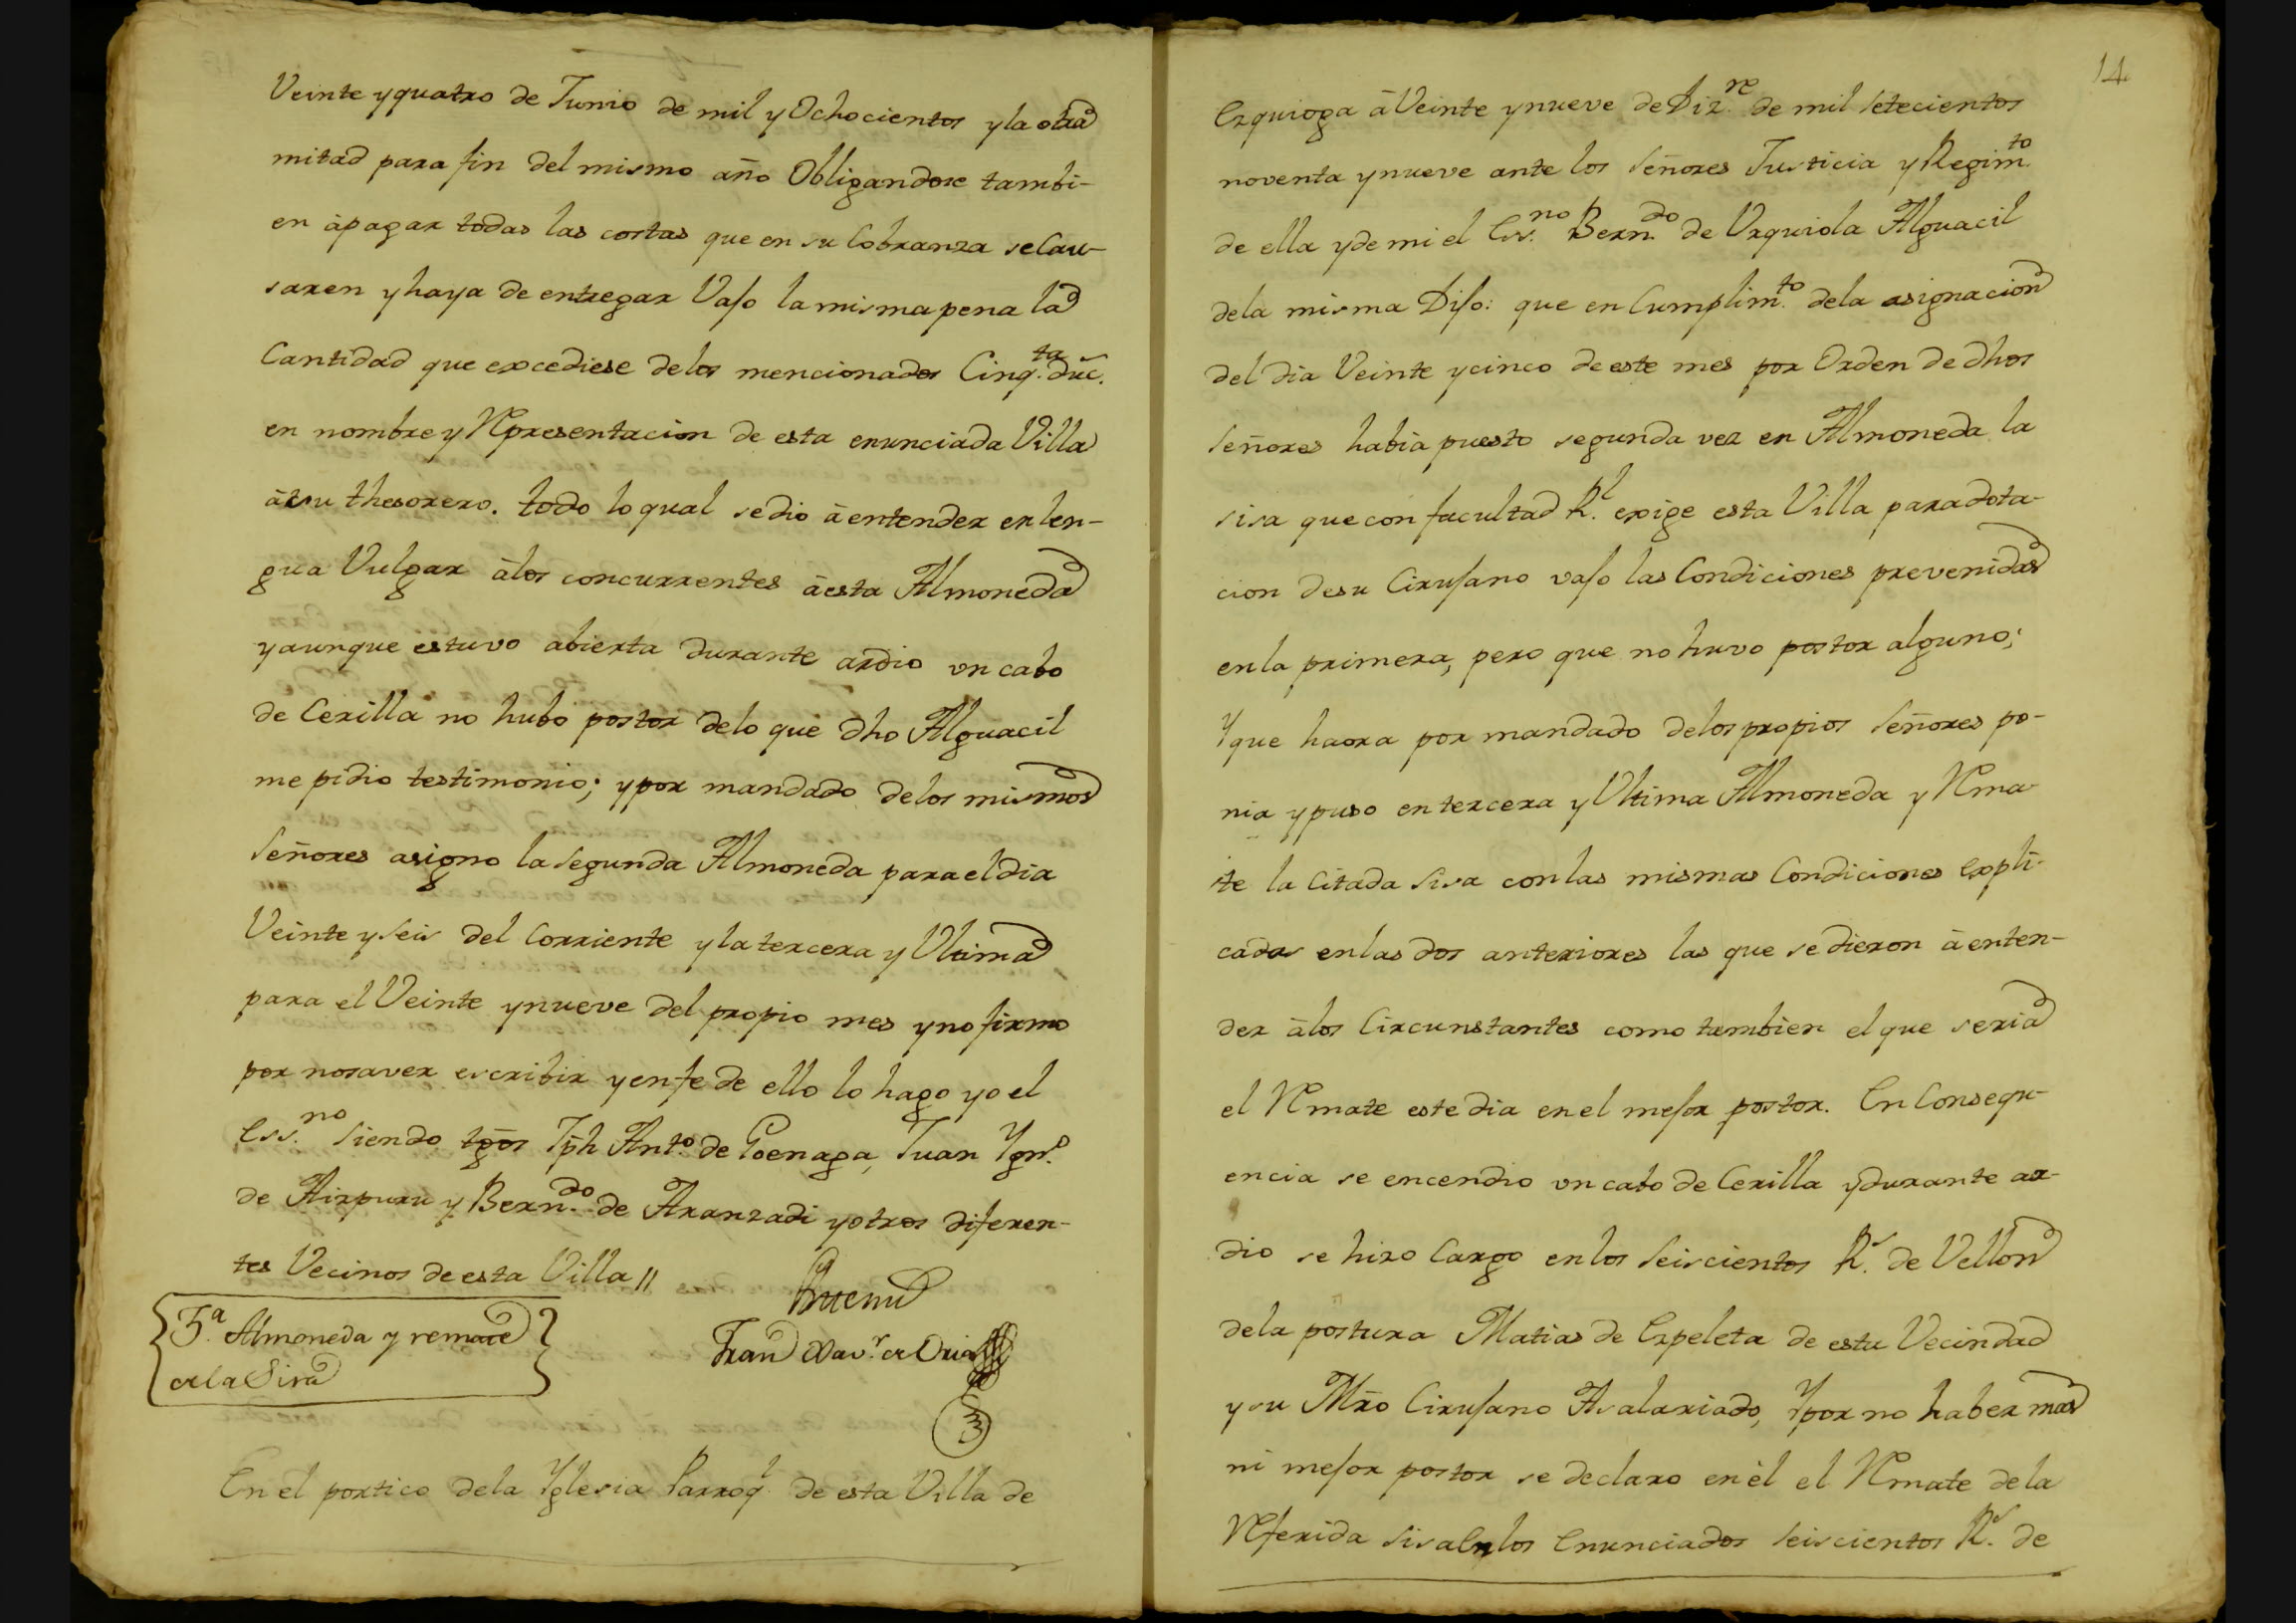 Veinte y quatro de Junio de mil y Ochocientos y la otra
mitad para fin del mismo año Obligandose tambi-
en à pagar todas las costas que en su Cobranza se Cau-
saren y haya de entregar Vajo la misma pena la
Cantidad que excediese de los mencionados Cinq.ta duc.
en nombre y Representacion de esta enunciada Villa
à su thesorero. todo lo qual se dio à entender en len-
gua Vulgar à los concurrentes à esta Almoneda
y aunque estuvo abierta durante ardio un cabo
de Cerilla no hubo postor de lo que dho Alguacil
me pidio testimonio; y por mandado de los mismos
Señores asigno la Segunda Almoneda para el dia
Veinte y Seis del Corriente y la tercera y Ultima
para el Veinte y nueve del propio mes y no firmo
por no saver escribir y en fe de ello lo hago yo el
Ess.no Siendo tgõs Jph Ant.o de Goenaga, Juan Ygn.o
de Aizpuru y Bern.do de Aranzadi y otros diferen-
tes Vecinos de esta Villa //
Ante mi
Fran Xav.r de Oria
3.a Almoneda y remate
de la Sisa
En el portico de la Yglesia Parroq.l de esta Villa de
14
Ezquioga à Veinte y nueve de Diz.re de mil Setecientos
noventa y nueve ante los Señores Justicia y Regim.to
de ella y de mi el Ess.no Bern.do de Urquiola Alguacil
de la misma Dijo: que en Cumplim.to de la asignacion
del dia Veinte y cinco de este mes por Orden de dhos
Señores habia puesto segunda vez en Almoneda la
sisa que con facultad R.l exige esta Villa para dota-
cion de su Cirujano vajo las Condiciones prevenidas
en la primera, pero que no huvo postor alguno;
Y que haora por mandado de los propios Señores po-
nia y puso en tercera y Ultima Almoneda y Rema-
te la Citada Sisa con las mismas Condiciones Expli-
cadas en las dos anteriores las que se dieron à enten-
der à los Circunstantes como tambien el que seria
el Remate este dia en el mejor postor. En Consequ-
encia se encendio un cabo de Cerilla y durante ar-
dio se hizo Cargo en los Seiscientos R.s de Vellon
de la postura Matias de Ezpeleta de esta Vecindad
y su Mro Cirujano Asalariado, Y por no haber mas
ni mejor postor se declaro en èl el Remate de la
Referida Sisa En los Enunciados Seiscientos R.s de